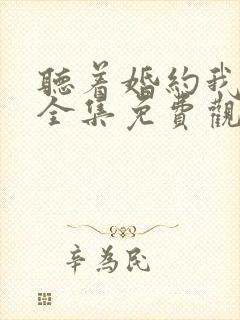 聽着婚約我
全集免費觀
辛為民